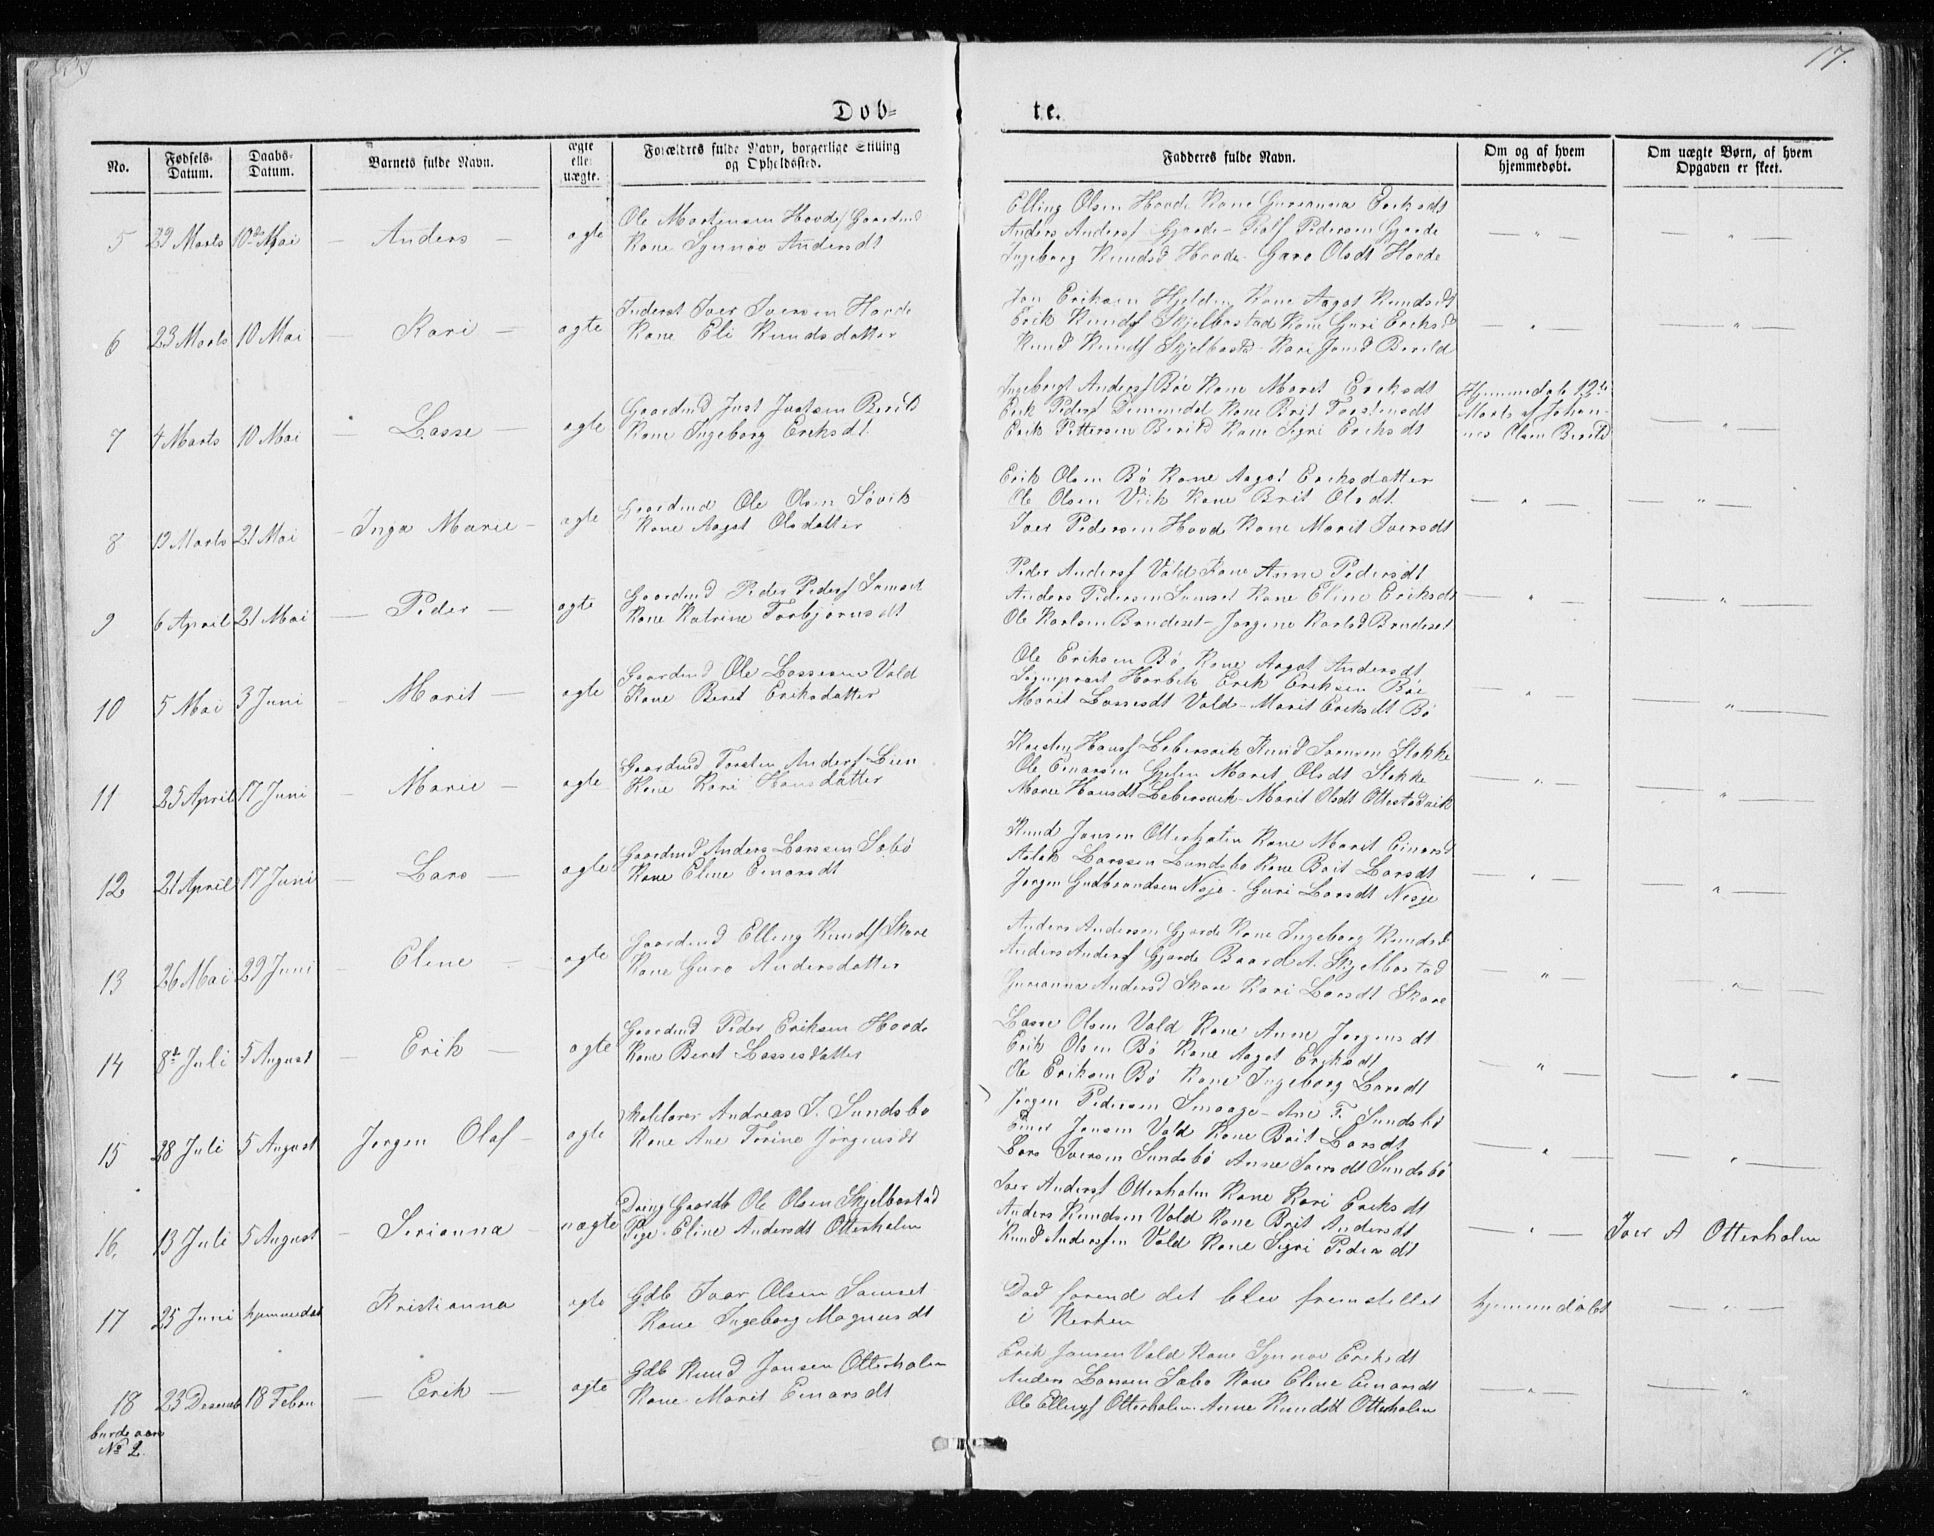 17.
Døb=
te.
No.
Fødsels-
Datum.
Daabs-
Datum.
Barnets fulde Navn.
ægte
eller
uægte.
Forældres fulde Navn, borgerlige Stilling
og Opholdssted.
Fadderes fulde Navn.
Om og af hvem
hjemmedøbt.
Om uægte Børn, af hvem
Opgaven er skeet.
5 29 Marts 10de Mai — Anders — ægte
Ole Mortensen Hovde Gaardmd
Kone Synnøv Andersdt
Elling Olsen Hovde Kone Gurianna Eriksdt
Anders Anders Gjørde - Rolf Pedersen Gjørde
Ingeborg Knudsd Hovde - Guro Olsdt Hovde
— " —
— " —
6 23 Marts 10 Mai — Kari — ægte
Inderst Iver Iversen Hovde
Kone Eli Knudsdatter
Jon Eriksen Hjelden Kone Aagot Knudsdt
Erik Knuds Skjelbostad Kone Guri Eriksd
Knud Knuds Skjelbostd - Kari Jonsd Berild
— " —
— " —
7 4 Marts 10 Mai — Lasse — ægte
Gaardmd Just Justsen Berild
Kone Ingeborg Eriksdt
Ingebrigt Anders Bøe Kone Marit Eriksdt
Erik Peders Dimmedal Kone Brit Torstensdt
Erik Pettersen Berild Kone Sigri Eriksdt
Hjemmedøbt 12te
Marts af Johan-
nes Olsen Berild
— " —
8 12 Marts 21 Mai — Inga Marie — ægte
Gaardmd Ole Olsen Søvik
Kone Aagot Olsdatter
Erik Olsen Bø Kone Aagot Eriksdatter
Ole Olsen Viik Kone Brit Olsdt
Iver Pedersen Hovde Kone Marit Iversdt
— " —
— " —
9 6 April 21 Mai — Peder — ægte
Gaardmd Peder Peders Samset
Kone Katrine Torbjørnsdt
Peder Anders Vold Kone Anne Pedersdt
Anders Pedersen Samset Kone Eline Eriksdt
Ole Karlsen Brudeset - Jørgine Karlsd Brudeset
— " —
— " —
10 5 Mai 3 Juni — Marit — ægte
Gaardmd Ole Lassesen Vold
Kone Beret Eriksdatter
Ole Eriksen Bø Kone Aagot Andersdt
Erik Eriksen Bøe
Marit Lassesdt Vold - Marit Eriksdt Bø
— " —
— " —
11 25 April 17 Juni — Marie — ægte
Gaardmd Torsten Anders Lien
Kone Kari Hansdatter
Karsten Hans Lebersvik Knud Iversen Stokke
Ole Einarsen Marit Olsdt Stokke
Marie Hansdt Lebersvik - Marit Olsdt Ottestadvik
— " —
— " —
12 21 April 17 Juni — Lars — ægte
Gaardmd Anders Larssen Sæbø
Kone Eline Einarsdt
Knud Jonsen Otterholm Kone Marit Einarsd
Aslak Larssen Sundsbø Kone Brit Larsdt
Jørgen Gudbrandsen Nesje - Guri Larsdt Nesje
— " —
— " —
13 26 Mai 29 Juni — Eline — ægte
Gaardmd Elling Knuds Skare
Kone Guro Andersdatter
Anders Andersen Gjørde Kone Ingeborg Knudsd
Anders Anders Gjørde Baard A. Skjelbostad
Gurianna Andersd Skare Kari Larsdt Skare
— " —
— " —
14 8de Juli 5 August — Erik — ægte
Gaardmd Peder Eriksen Hovde
Kone Beret Lassesdatter
Lasse Olsen Vold Kone Anne Jørgensdt
Erik Olsen Bø Kone Aagot Eriksdt
Ole Eriksen Bø Kone Ingeborg Larsdt
— " —
— " —
15 28 Juli 5 August Jørgen Olaf — ægte
Skolelærer Andreas I. Sundsbø
Kone Ane Torine Jørgensdt
Jørgen Pedersen Smaage - Ane F. Sundsbø
Einer Jonsen Vold Kone Brit Larsdt
Lars Iversen Sundsbø Anne Iversdt Sundsbø
— " —
— " —
16. 13 Juli 5 August — Serianna — uægte
Dreng Gaardb Ole Olsen Skjelbostad
Pige - Eline Andersdt Otterholm
Iver Anders Otterholm Kone Kari Eriksdt
Anders Knudsen Vold Kone Brit Andersdt
Knud Anderssen Vold Kone Sigri Pedersdt
— " —
Iver A Otterholm
17 25 Juni hjemmedøbt Kristianna ægte
Gdb Ivar Olsen Samset
Kone Ingeborg Magnusdt
Død førend det blev fremstillet
i Kirken
hjemmedøbt
— " —
18 23 Desemb 18 Febru — Erik — ægte
burde være
No 2.
Gdb Knud Jonsen Otterholm
Kone Marit Einarsdt
Erik Jonsen Vold Kone Synnøv Eriksdt
Anders Larssen Sæbø Kone Eline Einarsdt
Ole Ellings Otterholm - Anne Knudsdt Otterholm
— " —
— " —